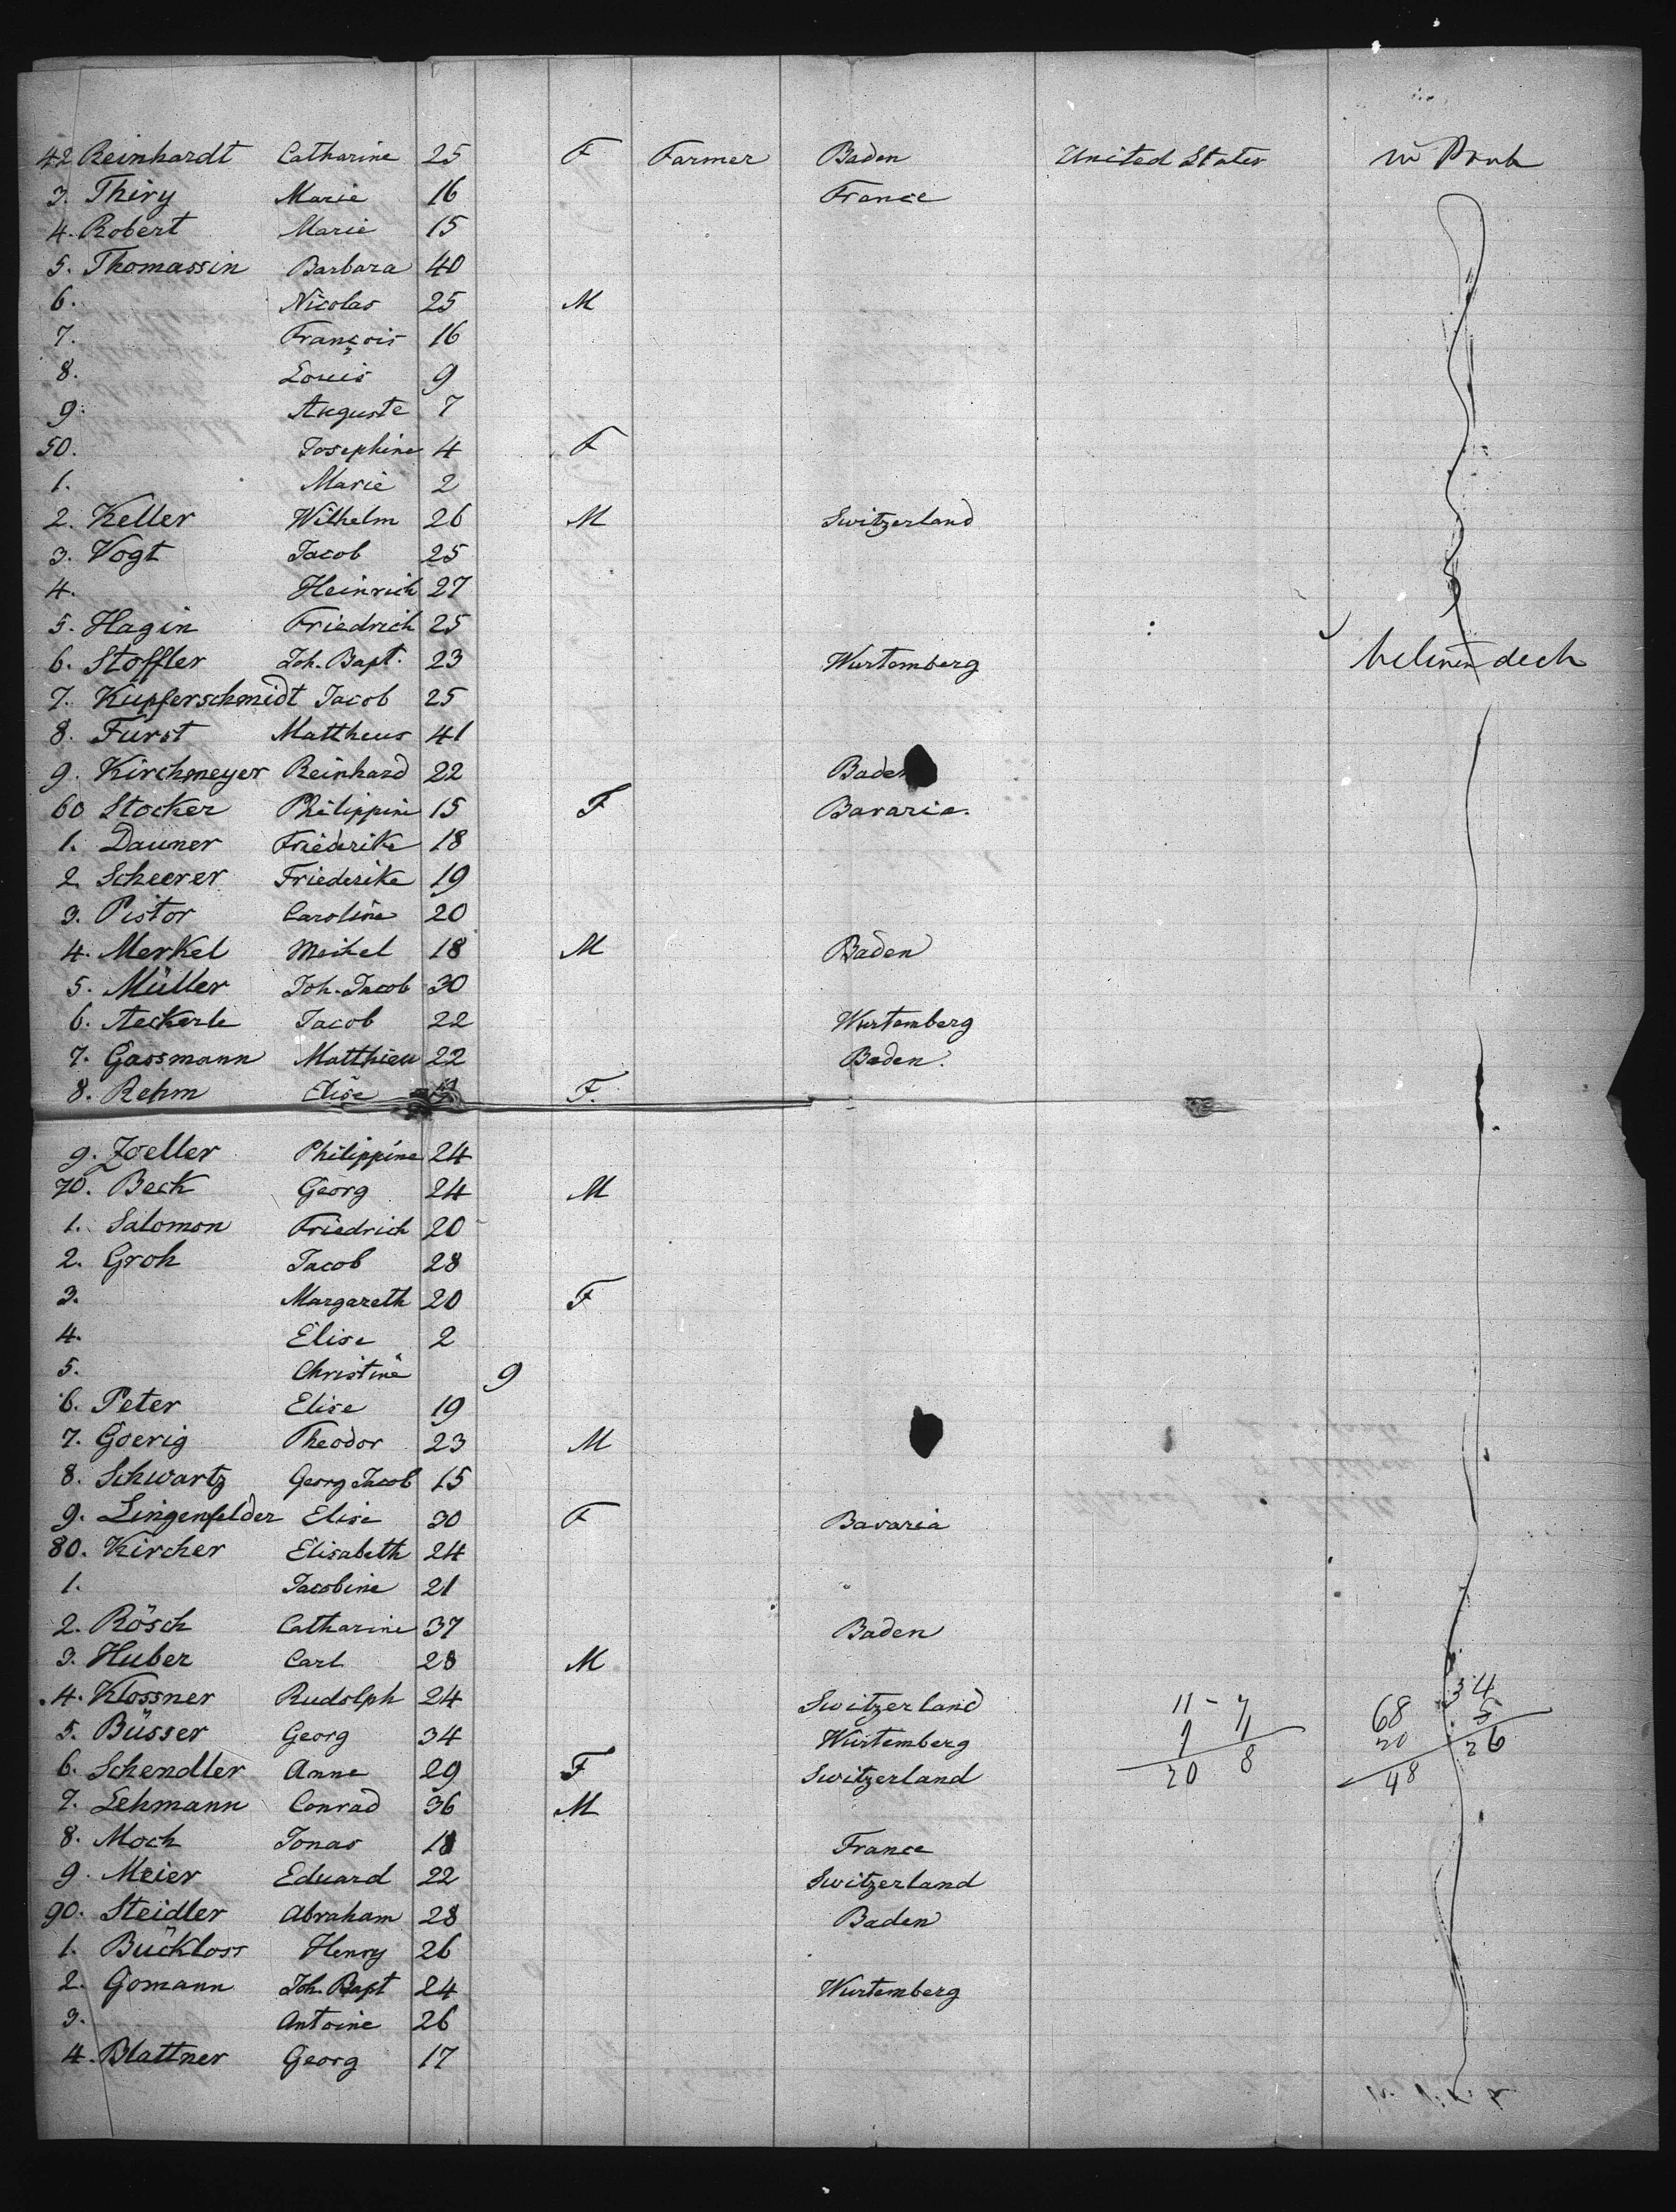 42 Reinhardt Catharine 25 F Farmer Baden United States
3. Thiry Marie 16 France
4. Robert Marie 15
5. Thomassin Barbara 40
6. Nicolas 25 M
7. François 16
8. Louis 9
9. Auguste 7
50. Josephine 4 F
1. Marie 2
2. Keller Wilhelm 26 M Switzerland
3. Vogt Jacob 25
4. Heinrich 27
5. Hagin Friedrich 25
6. Stoffler Joh. Bapt. 23 Wurtemberg deck
7. Kupferschmidt Jacob 25
8. Furst Mattheus 41
9. Kirchmeyer Reinhard 22 Baden
60 Stocker Philippine 15 F Bavaria.
1. Dauner Friederike 18
2 Scheerer Friederike 19
3. Pistor Caroline 20
4. Merkel Meikel 18 M Baden
5. Müller Joh. Jacob 30
6. Aeckerle Jacob 22 Wurtemberg
7. Gassmann Matthieu 22 Baden.
8. Rehm Elise F.
9. Zoeller Philippine 24
70. Beck Georg 24 M
1. Salomon Friedrich 20
2. Groh Jacob 28
3. Margareth 20 F
4. Elise 2
5. Christine 9
6. Peter Elise 19
7. Goerig Theodor 23 M
8. Schwartz Georg Jacob 15
9. Lingenfelder Elise 30 F Bavaria
80. Kircher Elisabeth 24
1. Jacobine 21 "
2. Rösch Catharine 37 Baden
3. Huber Carl 28 M
4. Klossner Rudolph 24 Switzerland 11 - 7 68 34
5. Büsser Georg 34 Wurtemberg 9 20 26
6. Schendler Anne 29 F Switzerland 20 8 48
7. Lehmann Conrad 36 M
8. Moch Jonas 18 France
9. Meier Eduard 22 Switzerland
90. Steidler Abraham 28 Baden
1. Bückloss Henry 26
2. Gomann Joh. Bapt 24 Wurtemberg
3. Antoine 26
4. Blattner Georg 17